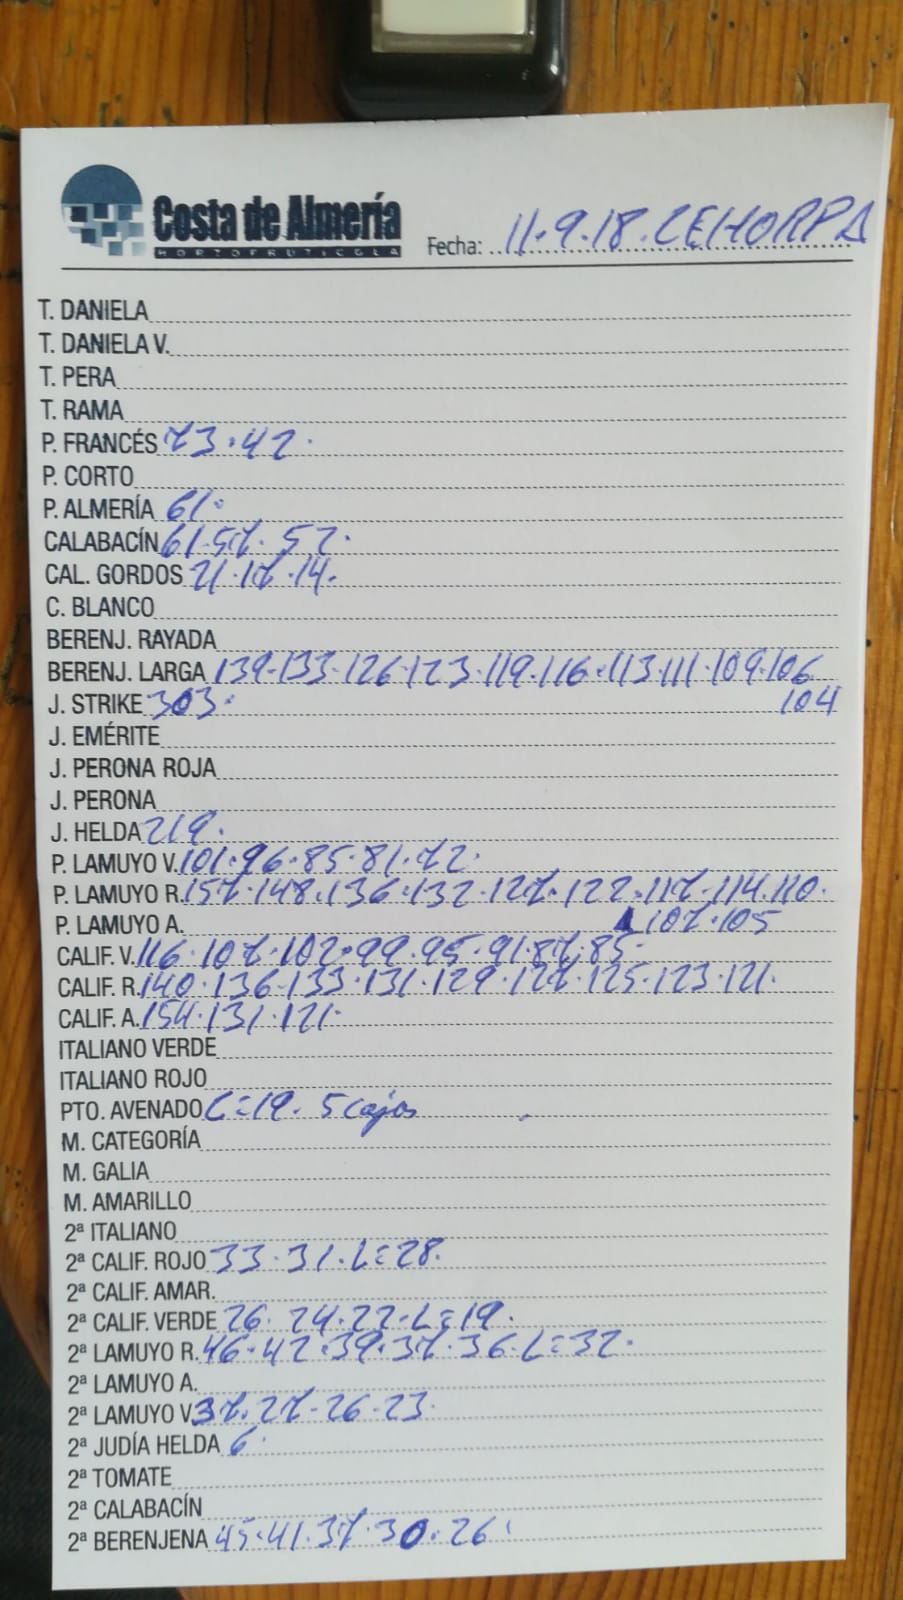 Costa de Almería
HORTOFRUTICOLA
Fecha: 11.9.18. CEHORPA
T. DANIELA
T. DANIELA V.
T. PERA
T. RAMA
P. FRANCÉS 73.42.
P. CORTO
P. ALMERÍA 61.
CALABACÍN 61.57.52.
CAL. GORDOS 21.17.14.
C. BLANCO
BERENJ. RAYADA
BERENJ. LARGA 139.133.126.123.119.116.113.111.109.106
J. STRIKE 303. 104
J. EMÉRITE
J. PERONA ROJA
J. PERONA
J. HELDA 219.
P. LAMUYO V. 101.96.85.81.72.
P. LAMUYO R. 157.148.136.132.127.122.117.114.110.
P. LAMUYO A. 107.105
CALIF. V. 116.107.102.99.95.91.87.85.
CALIF. R. 140.136.133.131.129.127.125.123.121.
CALIF. A. 154.131.121.
ITALIANO VERDE
ITALIANO ROJO
PTO. AVENADO L=19. 5 cajas
M. CATEGORÍA
M. GALIA
M. AMARILLO
2ª ITALIANO
2ª CALIF. ROJO 33.31.L=28.
2ª CALIF. AMAR.
2ª CALIF. VERDE 26.24.22.L=19.
2ª LAMUYO R. 46.42.39.37.36.L=32.
2ª LAMUYO A.
2ª LAMUYO V. 37.27.26.23.
2ª JUDÍA HELDA 6.
2ª TOMATE
2ª CALABACÍN
2ª BERENJENA 45.41.37.30.26.